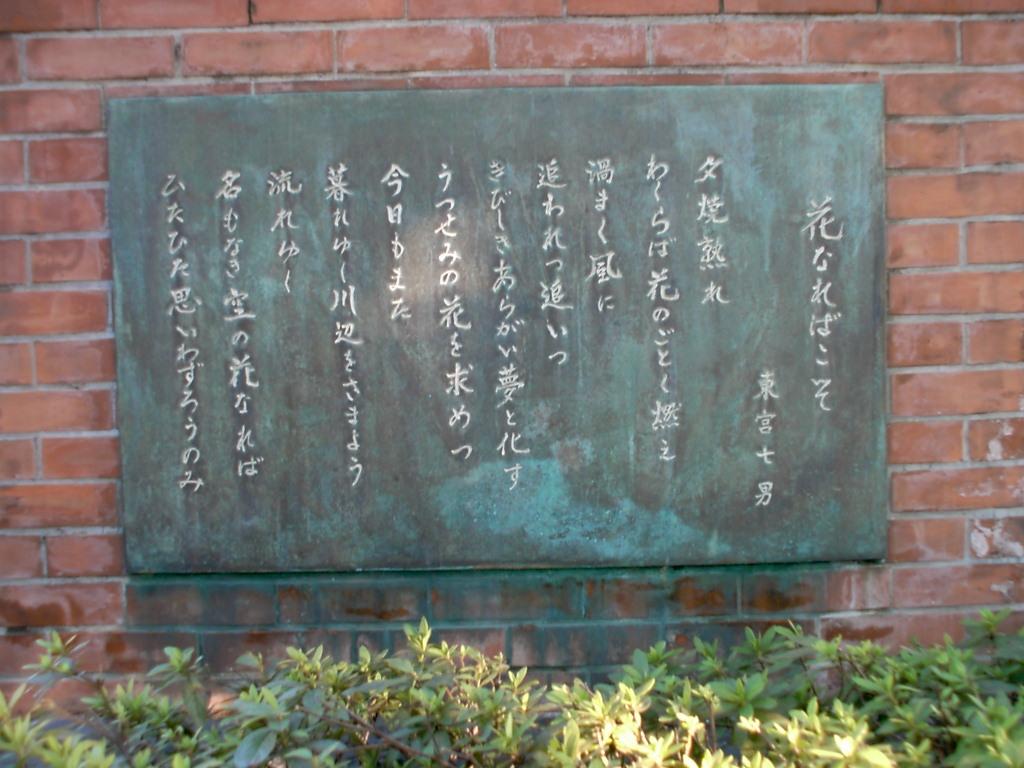 花なればこそ
東宮七男
夕焼熟れ
わくらば花のごとく燃え
渦まく風に
追われつ追いつ
きびしきあらがい夢と化す
うつせみの花を求めつ
今日もまた
暮れゆく川辺をさまよう
流れゆく
名もなき空の花なれば
ひたひた思いわずろうのみ